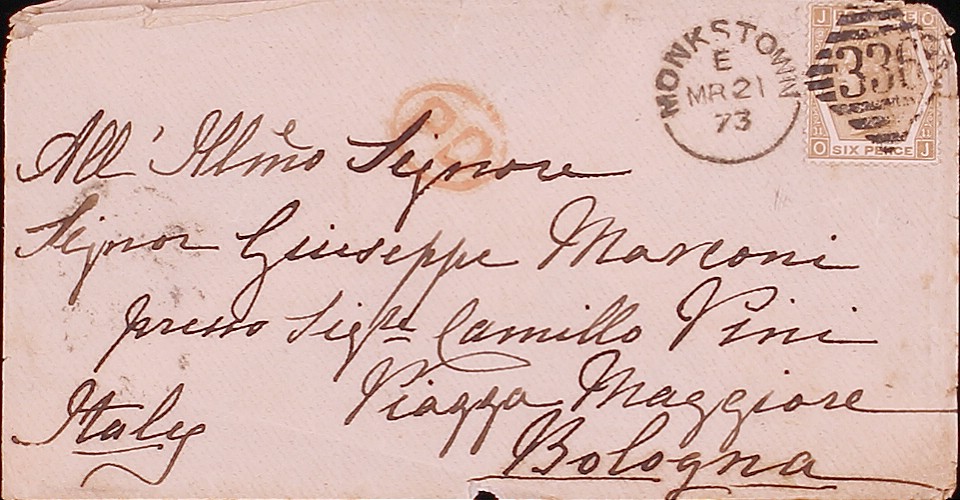 MONKSTOWN
E
MR 21
73
336
J O
O SIX PENCE J
PD
All' Illmo Signore
Signor Giuseppe Marconi
presso Sigre Camillo Pini
Piazza Maggiore
Italy
Bologna